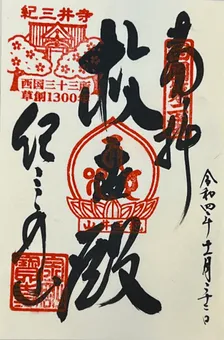 紀三井寺
西国三十三所
草創1300年
奉拝
救世殿
紀三井寺
令和四年十一月